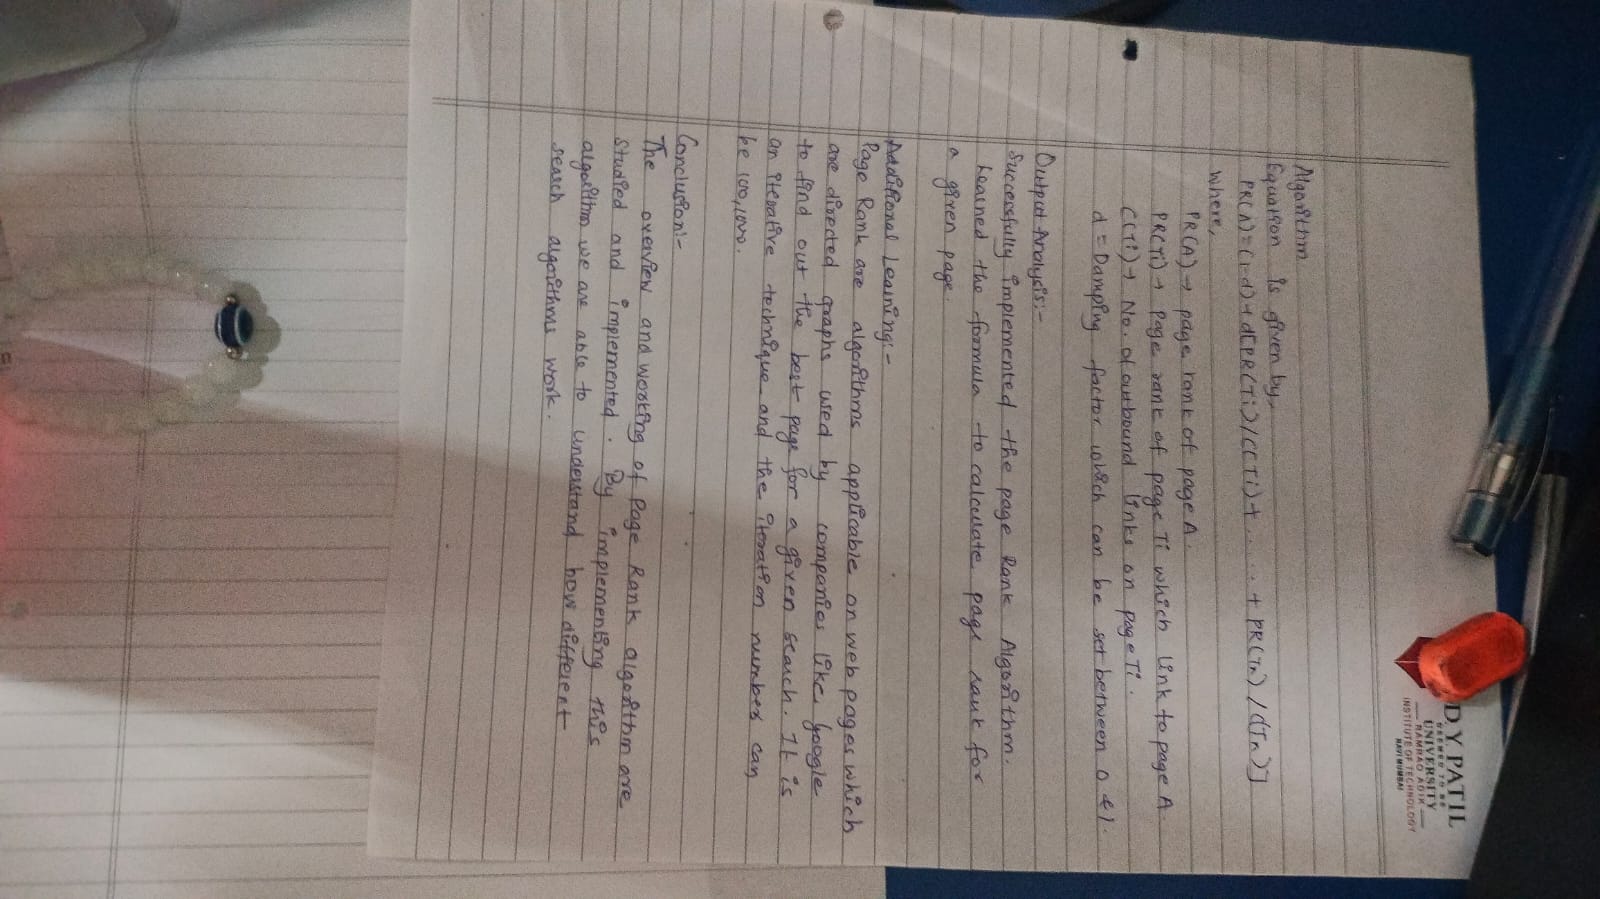 D.Y. PATIL
DEEMED TO BE
UNIVERSITY
RAMRAO ADIK
INSTITUTE OF TECHNOLOGY
NAVI MUMBAI
Algorithm
Equation is given by,
PR(A)=(1-d)+d[PR(Ti)/C(Ti)+ ...... + PR(Tn)/C(Tn)]
where,
PR(A) → page rank of page A.
PR(Ti) → Page rank of page Ti which link to page A.
C(Ti) → No. of outbound links on page Ti.
d = Damping factor which can be set between 0 & 1.
Output Analysis:-
Successfully implemented the page Rank Algorithm.
Learned the formula to calculate page rank for
a given page.
Additional Learning:-
Page Rank are algorithms applicable on web pages which
are directed graphs used by companies like google
to find out the best page for a given search. It is
an iterative technique and the iteration number can
be 100,1000.
Conclusion:-
The overview and working of Page Rank algorithm are
studied and implemented. By implementing this
algorithm we are able to understand how different
search algorithms work.